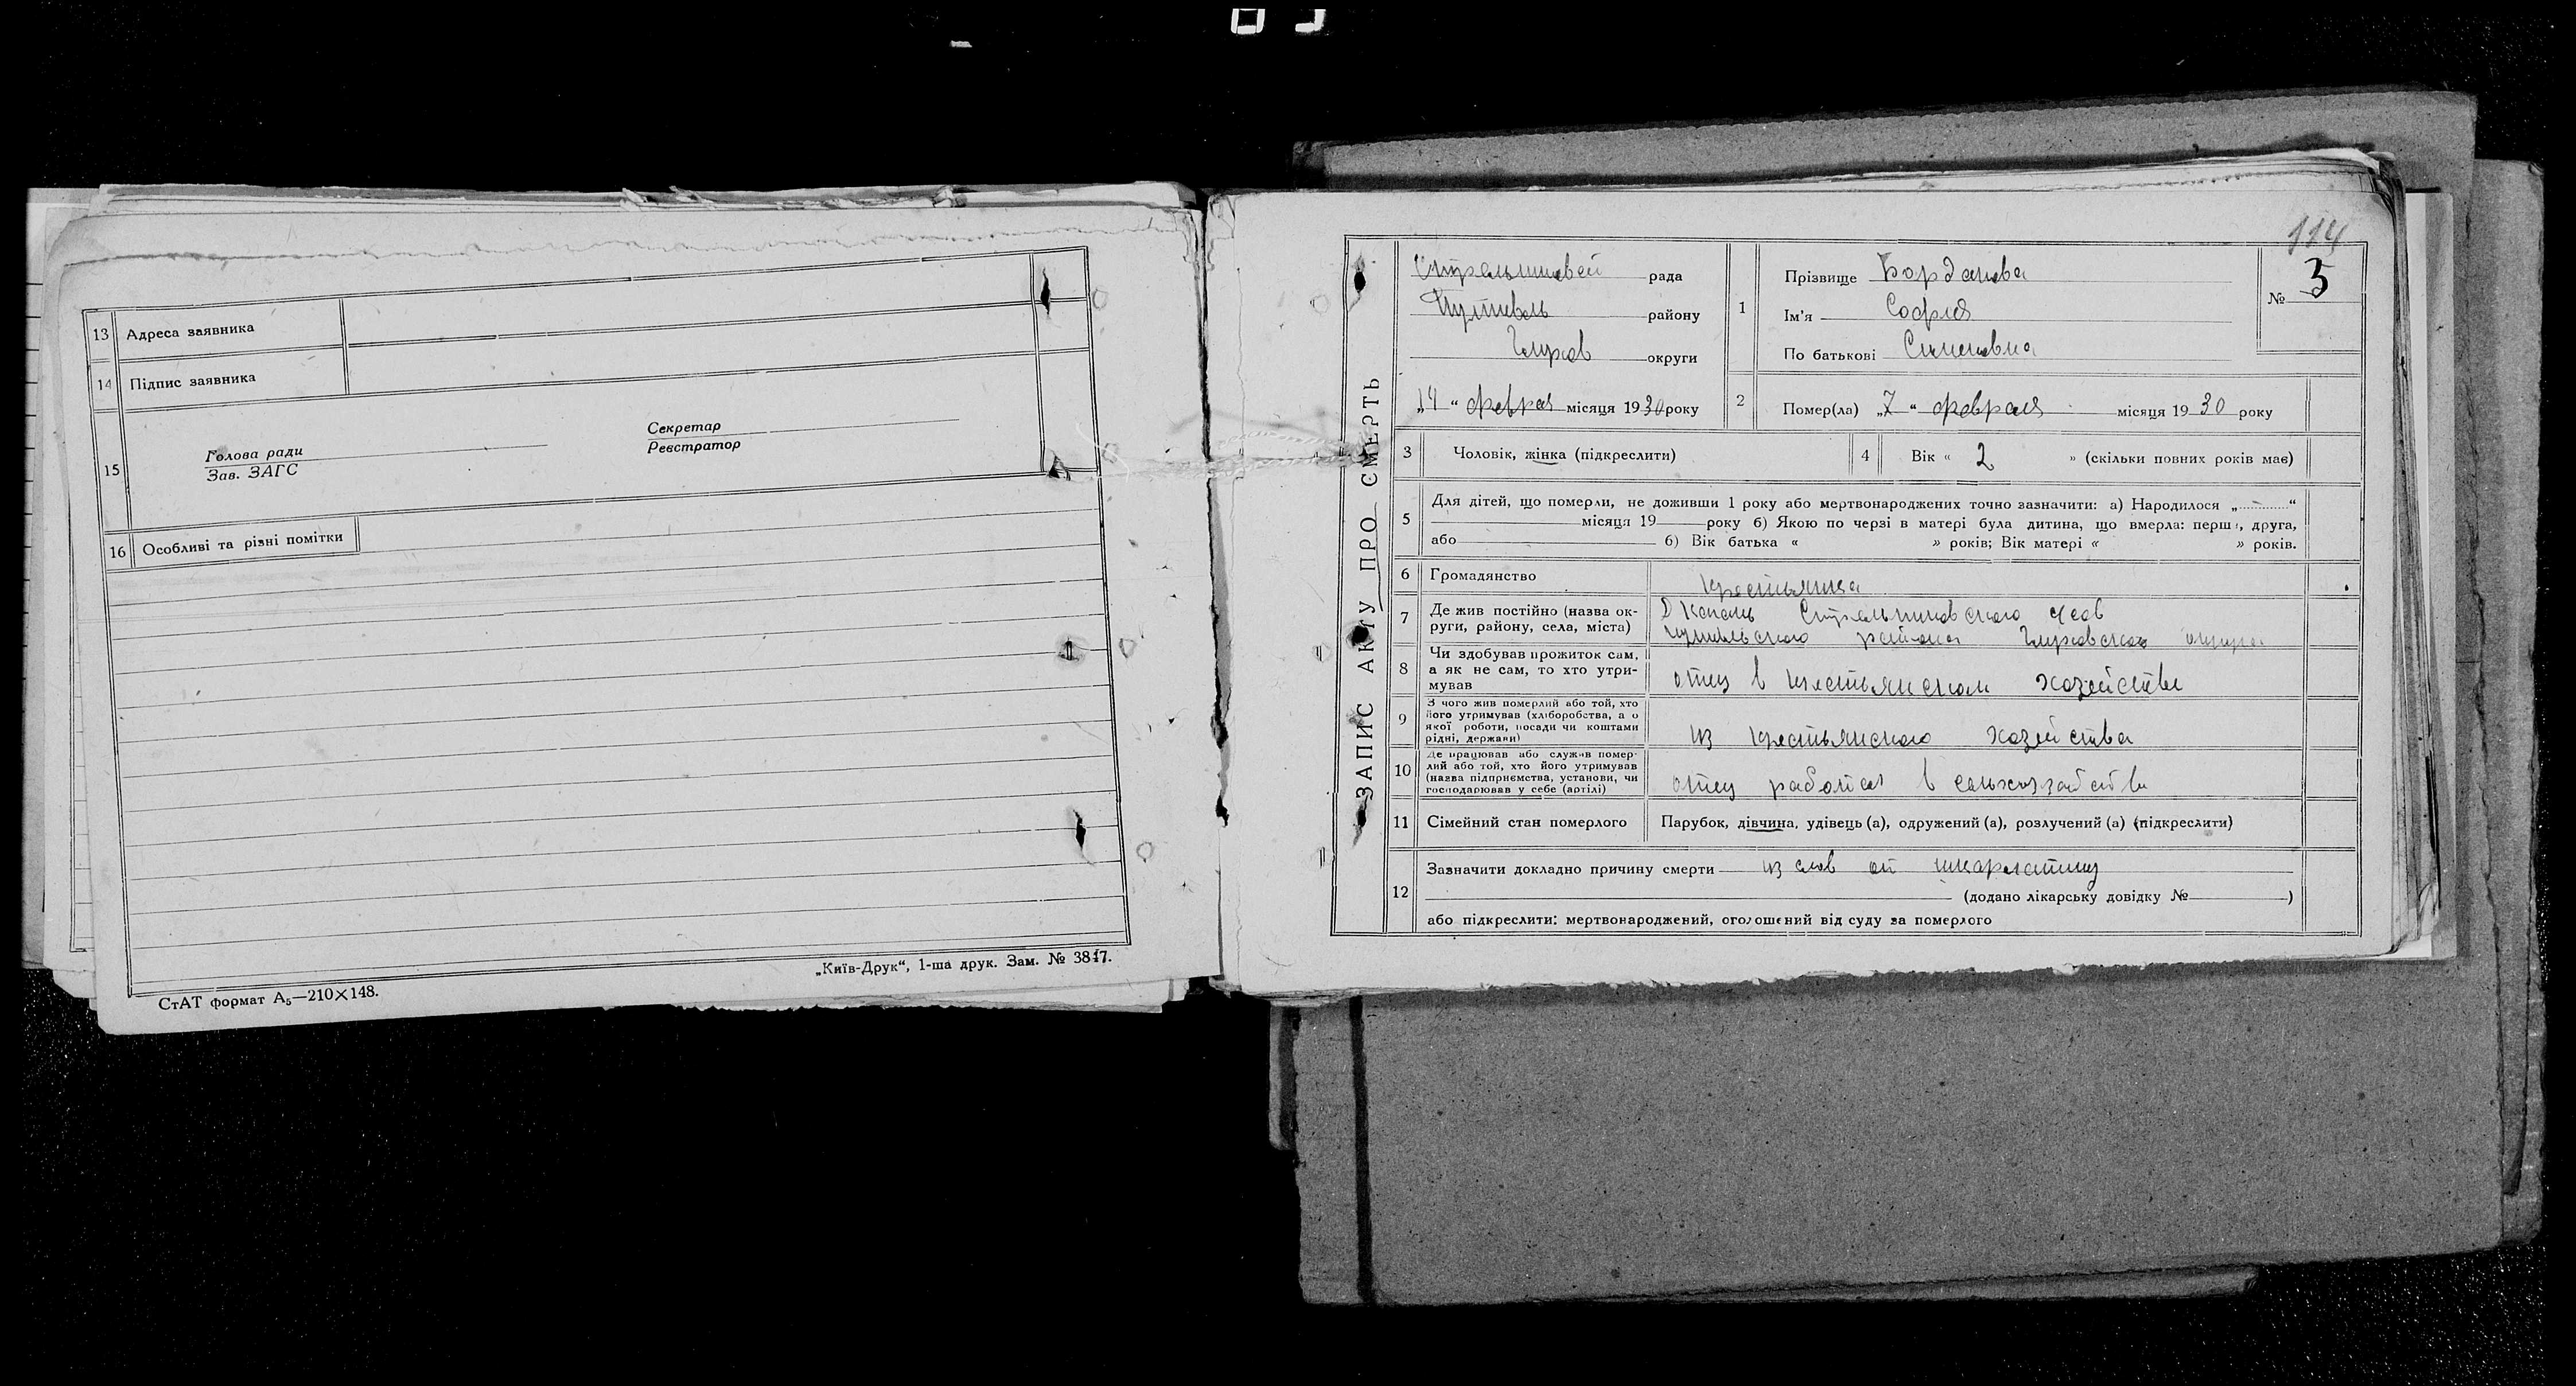 13 Адреса заявника
14 Підпис заявника
15 Голова ради
Зав. ЗАГС
Секретар
Реєстратор
16 Особливі та різні помітки
СтАТ формат А₅—210×148.
„Київ-Друк“, 1-ша друк. Зам. № 3847.
114
ЗАПИС АКТУ ПРО СМЕРТЬ
рада
Путивль району
Глухов округи
„14“ февраля місяця 1930 року
1 Прізвище
Ім'я София
По батькові
№ 3
2 Помер(ла) „7“ февраля місяця 1930 року
3 Чоловік, жінка (підкреслити)
4 Вік « 2 » (скільки повних років має)
5 Для дітей, що померли, не доживши 1 року або мертвонароджених точно зазначити: а) Народилося „ “
місяця 19 року б) Якою по черзі в матері була дитина, що вмерла: перша, друга,
або б) Вік батька « » років; Вік матері « » років.
6 Громадянство крестьянка
7 Де жив постійно (назва ок-
руги, району, села, міста)
Стрельниковского
Путивльского района Глуховского округа
8 Чи здобував прожиток сам,
а як не сам, то хто утри-
мував
отец в крестьянском хозействе
9 З чого жив померлий або той, хто
його утримував (хліборобства, а о
якої роботи, посади чи коштами
рідні, держави)
из крестьянского хозейства
10 Де працював або служив помер-
лий або той, хто його утримував
(назва підприємства, установи, чи
господарював у себе (артілі)
отец работал в сельхозяйстве
11 Сімейний стан померлого Парубок, дівчина, удівець (а), одружений (а), розлучений (а) (підкреслити)
12 Зазначити докладно причину смерти из слов от шкарлатины
(додано лікарську довідку № )
або підкреслити: мертвонароджений, оголошений від суду за померлого